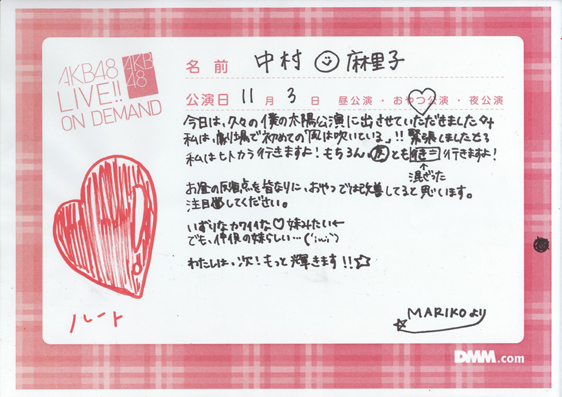 AKB48
LIVE!!
ON DEMAND
AKB
48
名前 中村 麻里子
公演日 11月3日 昼公演・おやつ公演・夜公演
今日は、久々の僕の太陽公演に出させていただきました
私は、劇場で初めての「風は吹いている」!! 緊張しました
行きますよ! もちろん、 とも 行きますよ!
↑
混ざった
お昼の反省点を皆なりに、おやつでは改善してると思います。
注目しててください。
いずりなカワイイな♡妹みたい←
でも、仲俣の妹らしい…(´;ω;`)
わたしは、次!もっと輝きます!!☆
ハート
☆MARIKOより
DMM.com